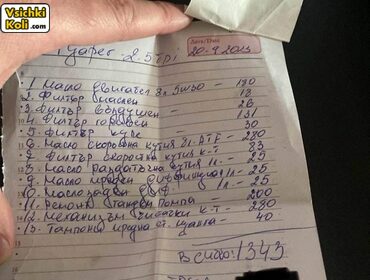 Vsichki
Koli.com
Дата/Date
Туарег - 2.5 TDI
20.9.2023
1 Масло двигател 8л 5w30 - 190
2. Филтър маслен - 18
3. Филтър въздушен - 26
4. Филтър горивен - 131
5. Филтър купе - 30
6. Масло скоростна кутия 9л. ATF - 280
7. Филтър скоростна кутия к-т - 83
8. Масло раздатъчна кутия 1л - 25
9. Масло преден диференциал 1л - 25
10. Масло заден диф - 25
11. Ремонт тандем помпа - 200
12. Механизъм чистачки к-т - 280
13. Тампони предна щанга - 40
Всичко: 1343